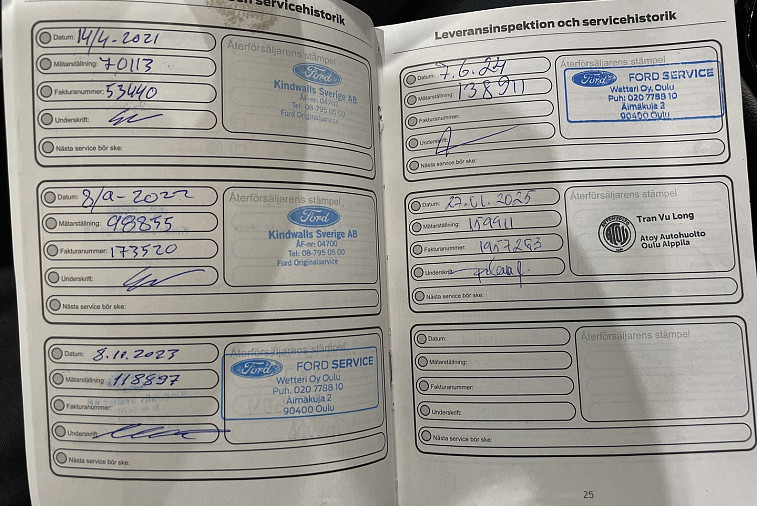 och servicehistorik
Datum: 14/4-2021
Mätarställning: 70113
Fakturanummer: 53440
Underskrift:
Nästa service bör ske:
Återförsäljarens stämpel
Ford
Kindwalls Sverige AB
ÅF-nr: 04700
Tel: 08-795 05 00
Ford Originalservice
Datum: 8/9-2022
Mätarställning: 98855
Fakturanummer: 173520
Underskrift:
Nästa service bör ske:
Återförsäljarens stämpel
Ford
Kindwalls Sverige AB
ÅF-nr: 04700
Tel: 08-795 05 00
Ford Originalservice
Datum: 8.11.2023
Mätarställning: 118897
Fakturanummer:
Underskrift:
Nästa service bör ske:
Återförsäljarens stämpel
Ford FORD SERVICE
Wetteri Oy Oulu
Puh. 020 7788 10
Äimäkuja 2
90400 Oulu
Leveransinspektion och servicehistorik
Datum: 7.6.24
Mätarställning: 138911
Fakturanummer:
Underskrift:
Nästa service bör ske:
Återförsäljarens stämpel
Ford FORD SERVICE
Wetteri Oy, Oulu
Puh: 020 7788 10
Äimäkuja 2
90400 Oulu
Datum: 27.01.2025
Mätarställning: 159911
Fakturanummer: 1957293
Underskrift:
Nästa service bör ske:
Återförsäljarens stämpel
Tran Vu Long
Atoy Autohuolto
Oulu Alppila
Datum:
Mätarställning:
Fakturanummer:
Underskrift:
Nästa service bör ske:
Återförsäljarens stämpel
25